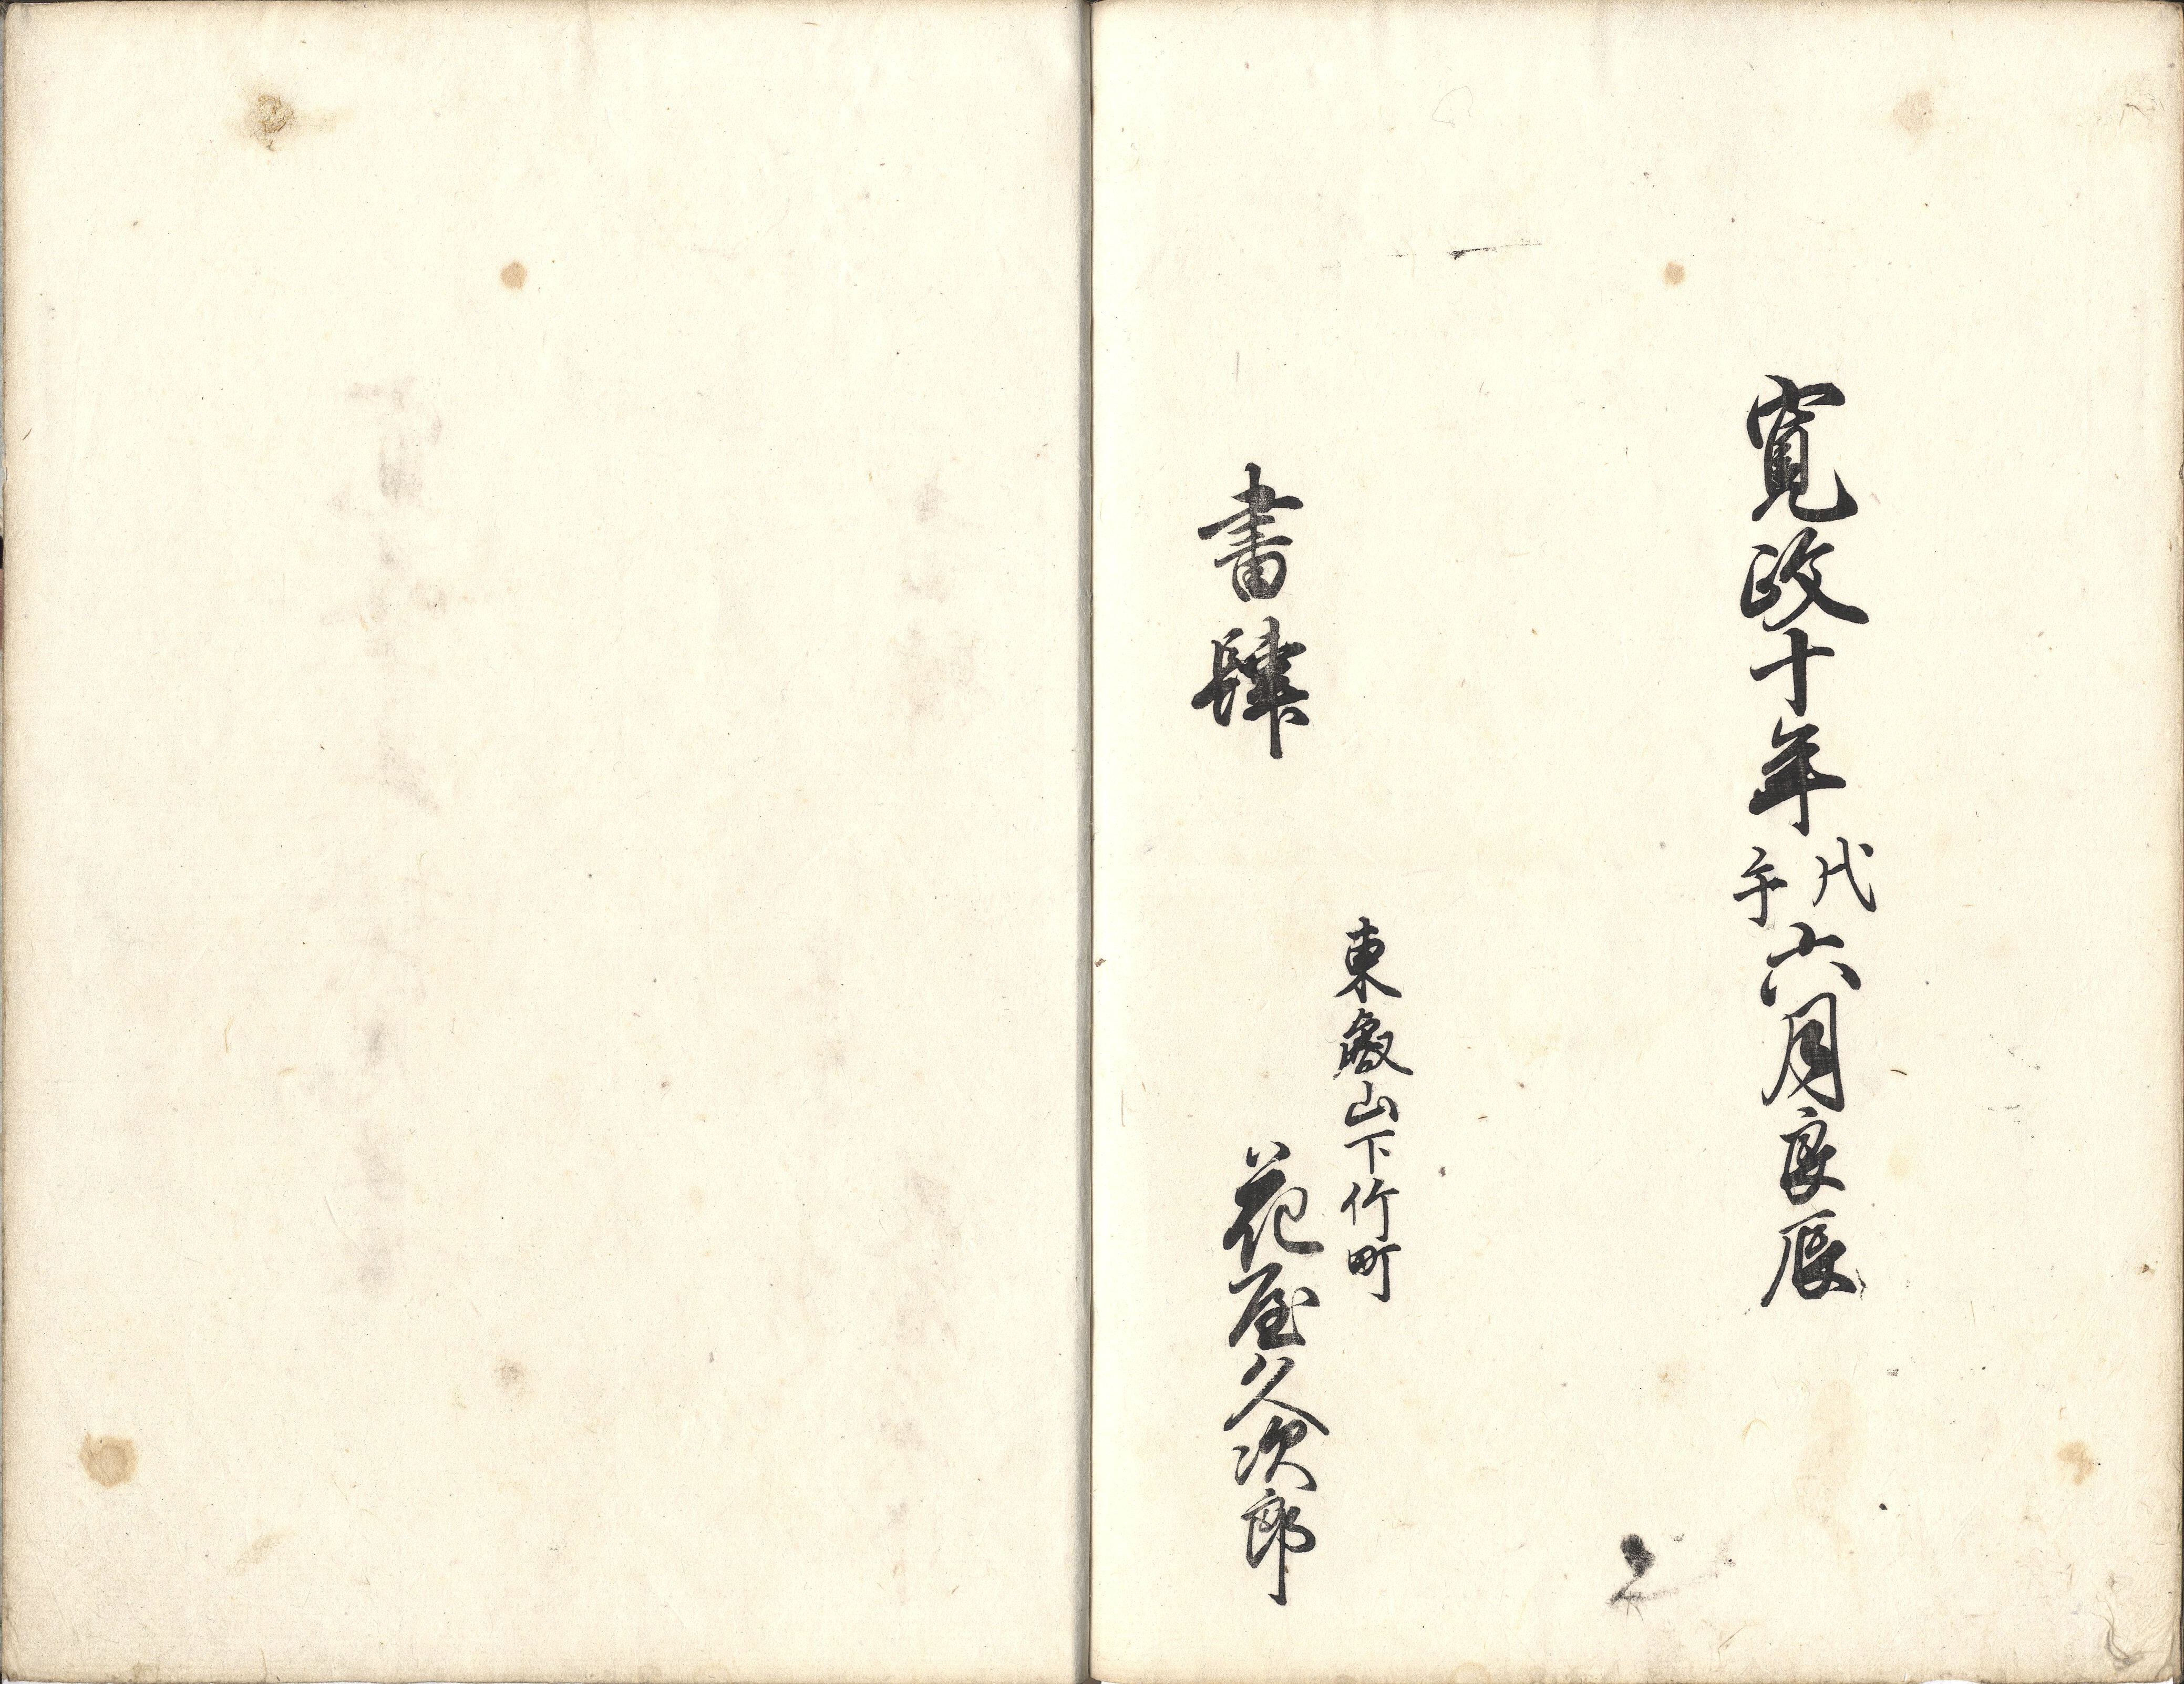 寛政十年戊午六月良辰
東叡山下竹町
書肆　花屋久次郎